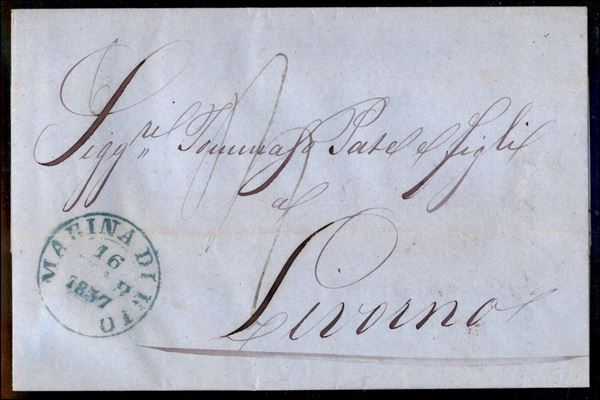 Sigg.ri Tommaso Pate e figli
a
Livorno
MARINA DI RIO
16
1857